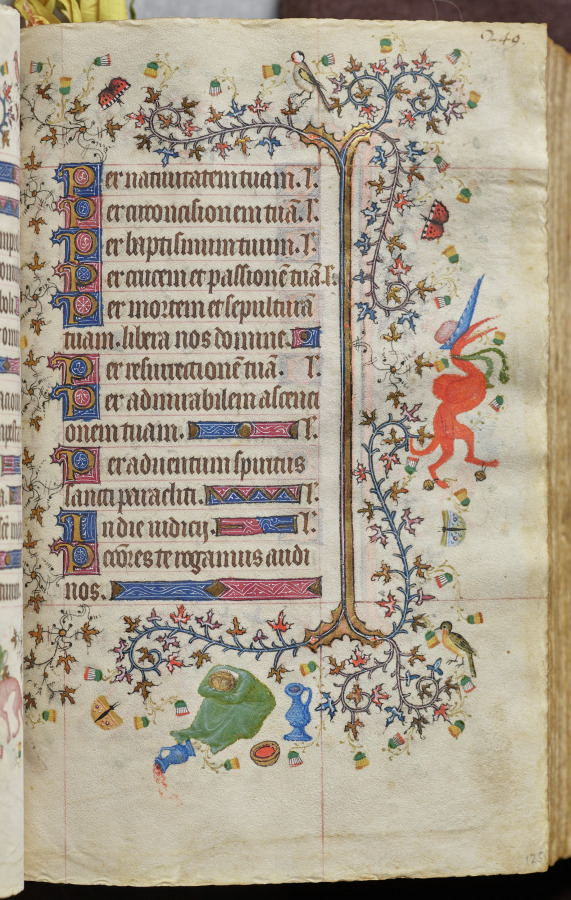 240.
Per natiuitatem tuam. l'.
Per circoncisionem tuā. l'.
Per baptismum tuum. l'.
Per crucem et passionē tuā l'.
Per mortem et sepulturā
tuam. libera nos domine.
Per resurrectionē tuā. l'.
Per admirabilem ascenci
onem tuam. l'.
Per aduentum spiritus
sancti paracliti. l'.
In die iudicij. l'.
Peccōres te rogamus audi
nos.
125